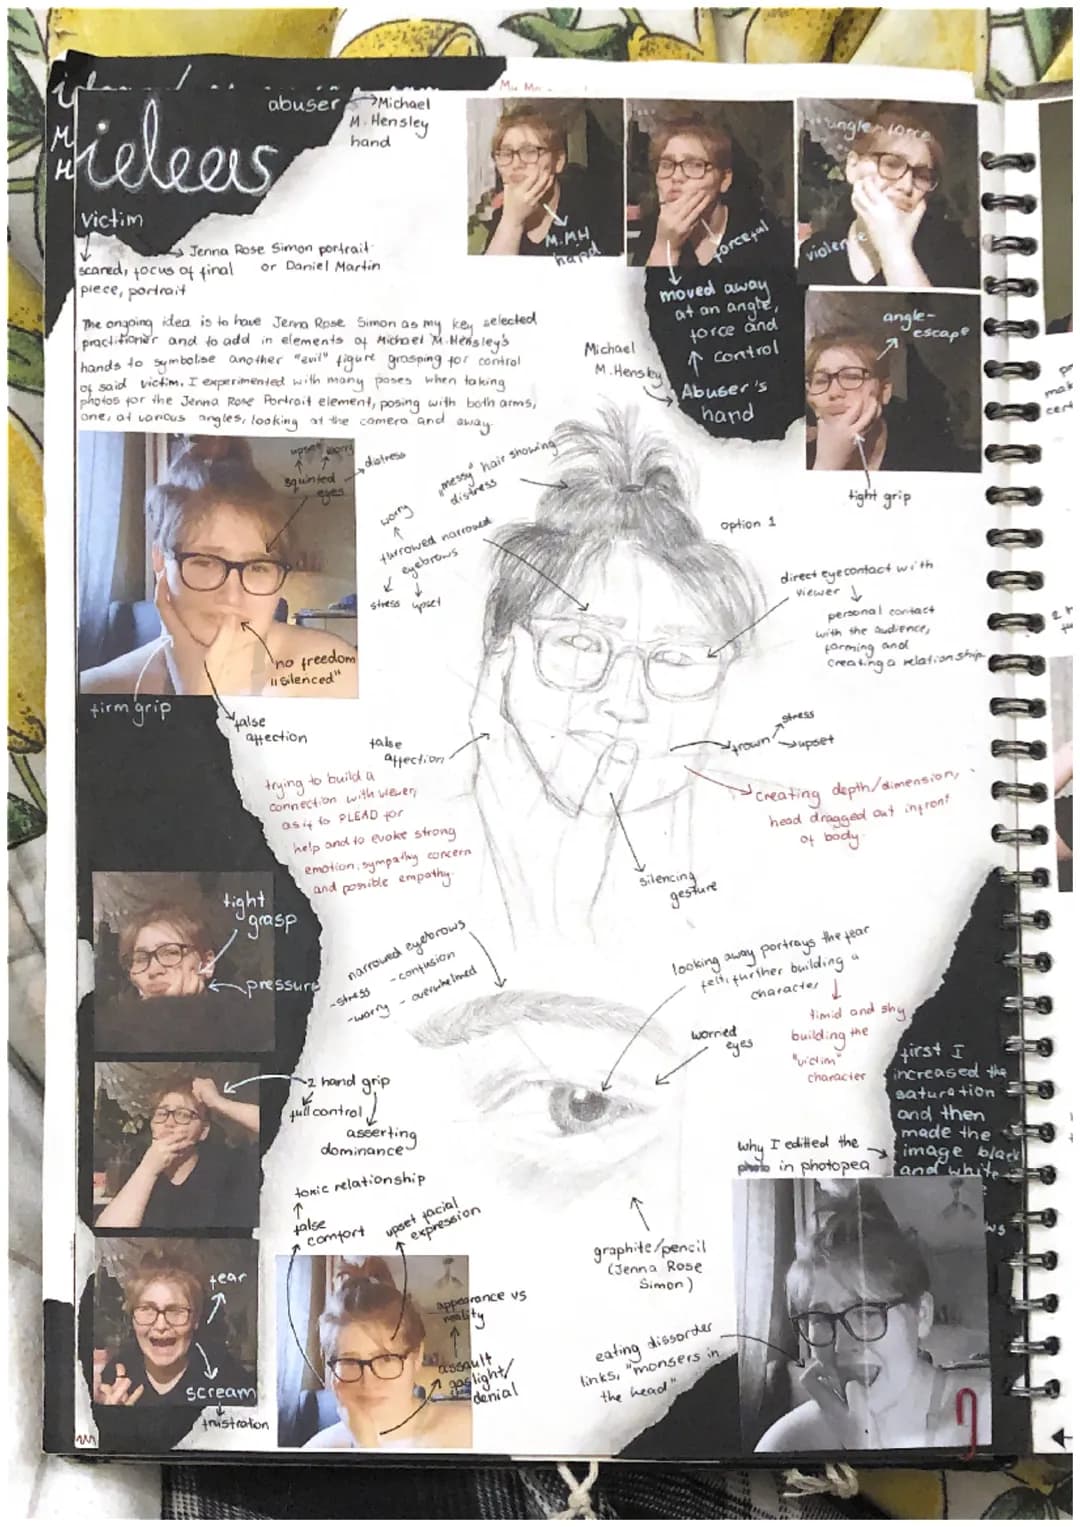 ideas
abuser → Michael
M. Hensley
hand
victim
→ Jenna Rose Simon portrait
or Daniel Martin
scared, focus of final
piece, portrait
The ongoing idea is to have Jenna Rose Simon as my key selected
practitioner and to add in elements of Michael M.Hensley's
hands to symbolise another "evil" figure grasping for control
of said victim. I experimented with many poses when taking
photos for the Jenna Rose Portrait element, posing with both arms,
one, at various angles, looking at the camera and away.
M.MH
hand
forceful
angle force
violence
moved away
at an angle,
force and
control
Abuser's
hand
Michael
M.Hensley
angle-
escape
tight grip
upset worry
squinted
eyes
distress
no freedom
"silenced"
firm grip
false
affection
"messy" hair showing
distress
worry
furrowed narrowed
eyebrows
stress upset
option 1
direct eyecontact with
viewer
personal contact
with the audience,
forming and
creating a relationship
false
affection
frown
stress
upset
trying to build a
connection with viewer,
as if to PLEAD for
help and to evoke strong
emotion, sympathy concern
and possible empathy.
creating depth/dimension,
head dragged out infront
of body.
silencing
gesture
tight
grasp
pressure
narrowed eyebrows
-stress - confusion
-worry - overwhelmed
looking away portrays the fear
felt, further building a
character
timid and shy
building the
"victim"
character
worried
eyes
2 hand grip
full control
asserting
dominance
first I
increased the
saturation
and then
made the
image black
and white
why I editted the
photo in photopea
toxic relationship
false
comfort
upset facial
expression
graphite/pencil
(Jenna Rose
Simon)
fear
scream
frustration
appearance vs
reality
assault
gaslight/
denial
eating dissorder
links, "monsers in
the head"